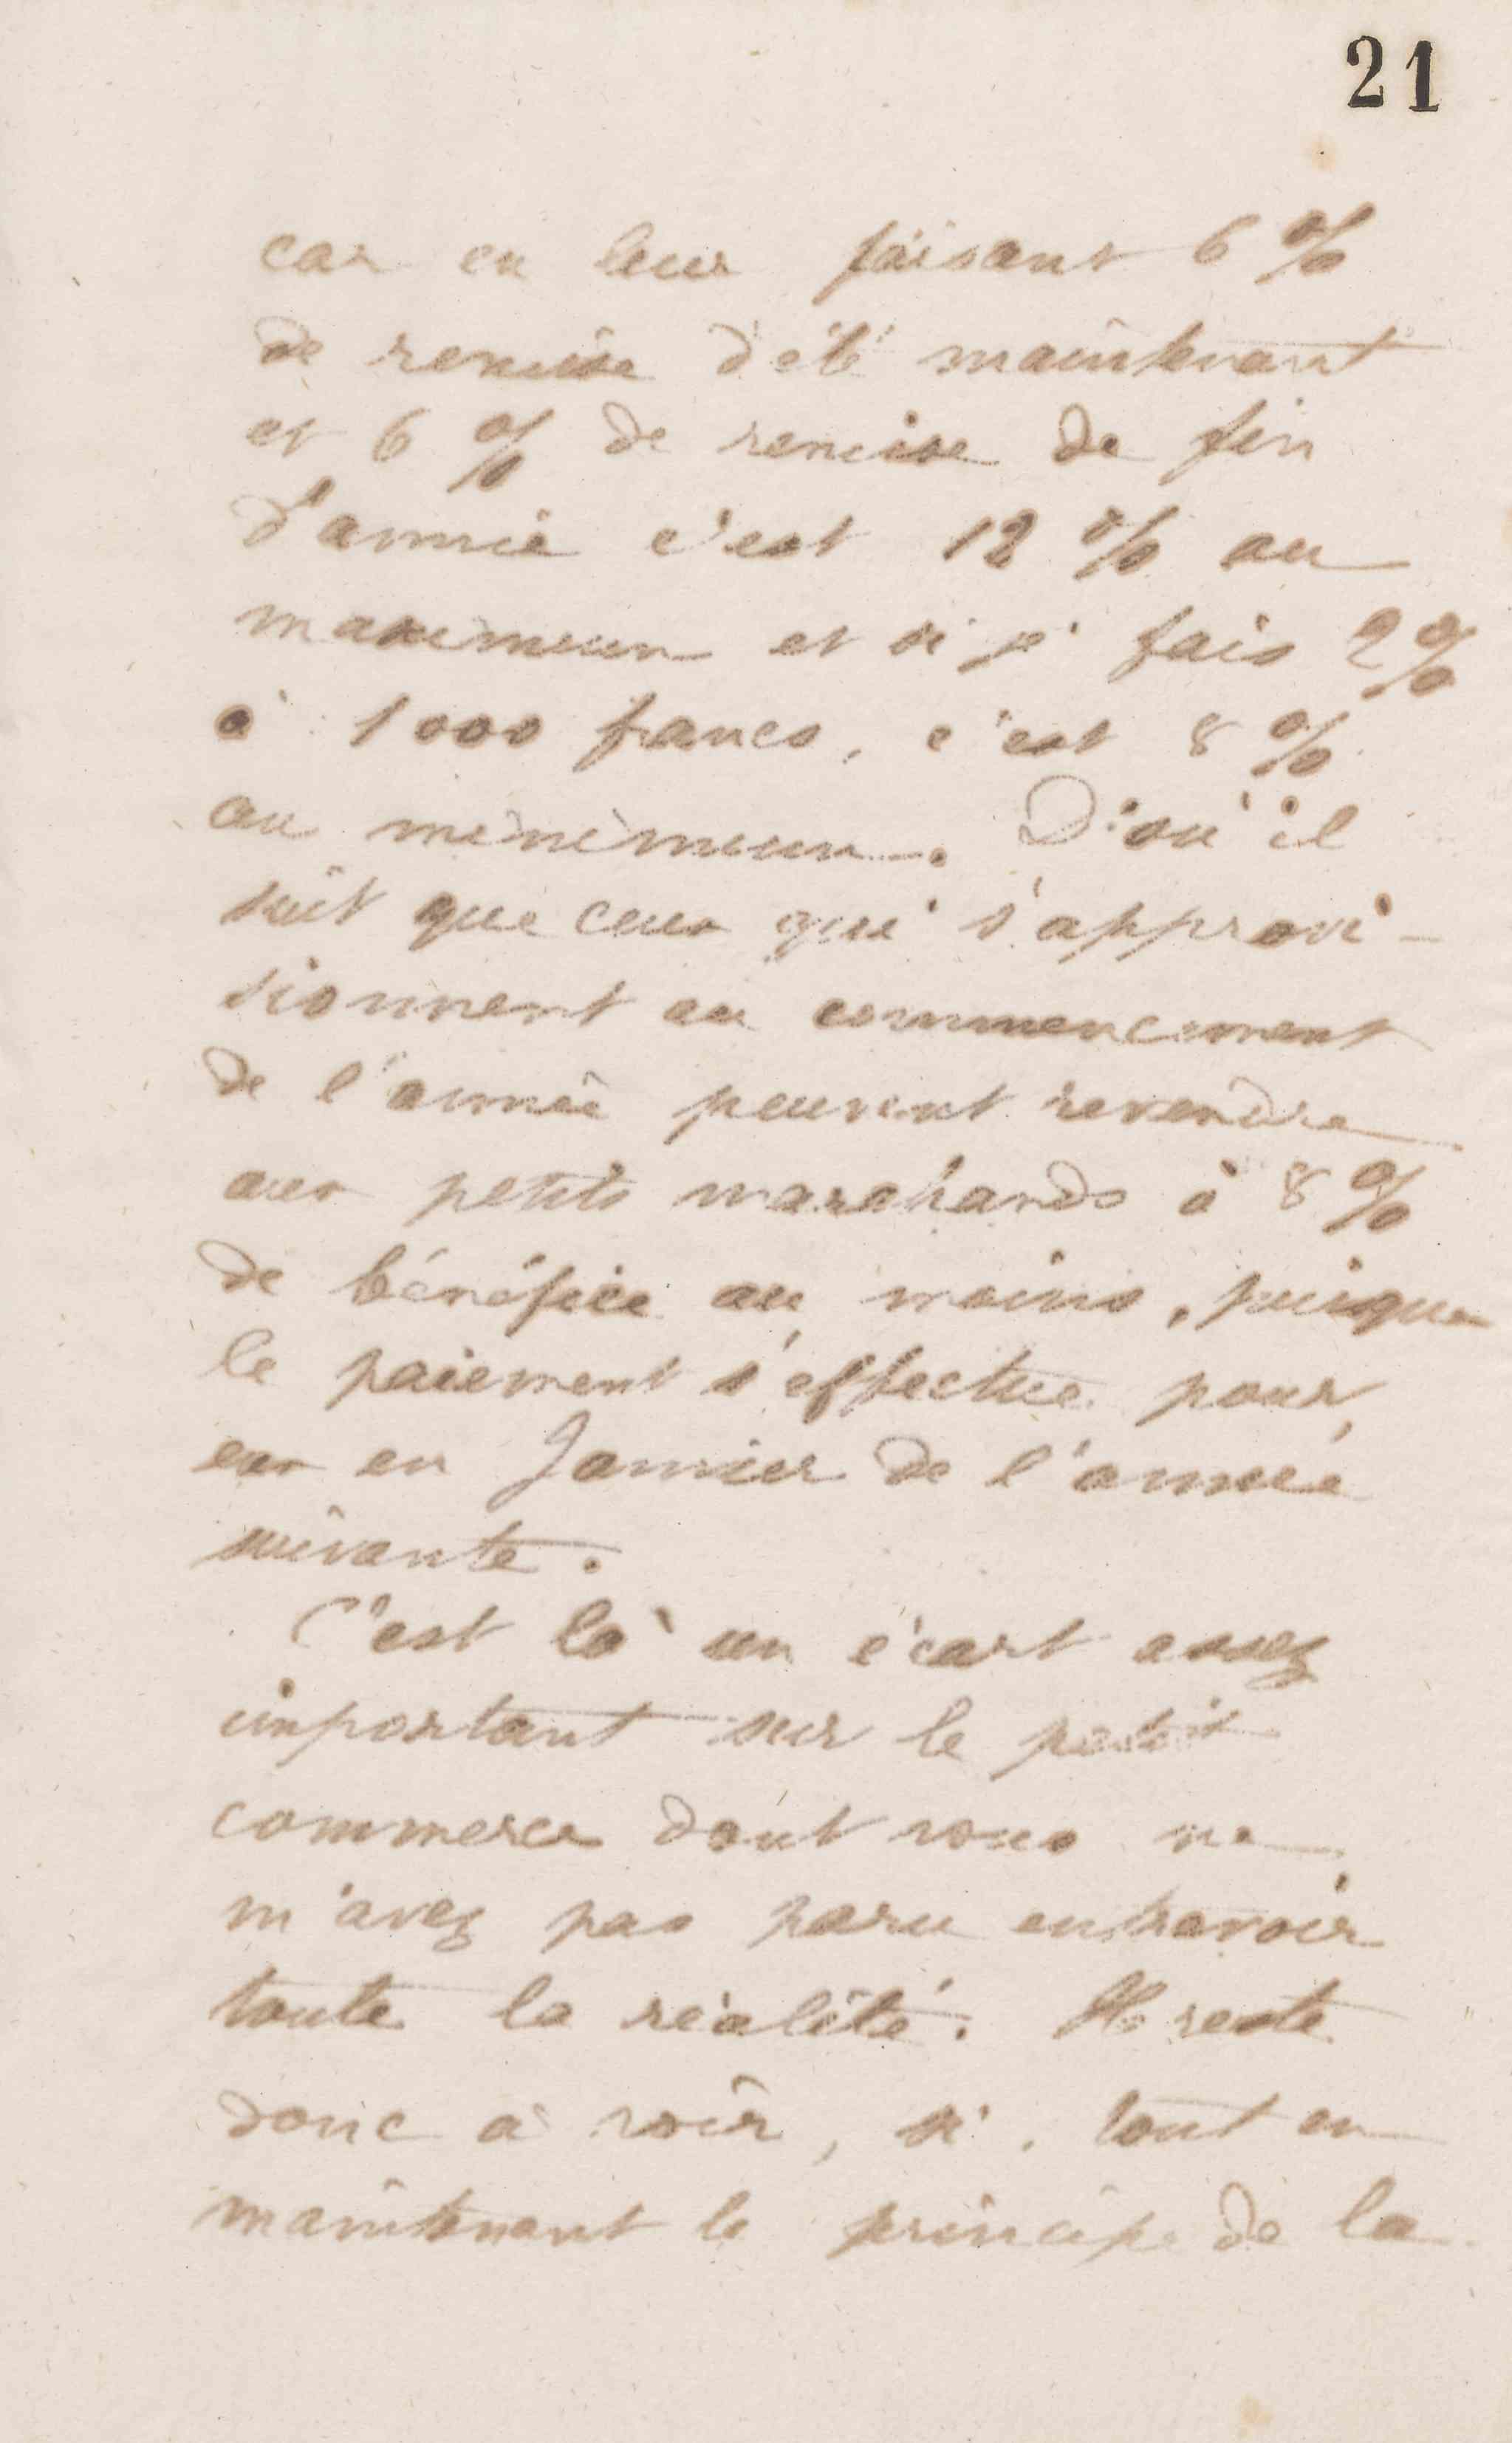 21
car en leur faisant 6 %
de remise d'été maintenant
et 6 % de remise de fin
d'année c'est 12 % au
maximum et si je fais 2 %
à 1000 francs, c'est 8 %
au minimum. D'où il
suit que ceux qui s'approvi-
sionnent au commencement
de l'année peuvent revendre
aux petits marchands à 8 %
de bénéfice au moins, puisque
le paiement s'effectue pour
eux en Janvier de l'année
suivante.
C'est là un écart assez
important sur le petit
commerce dont vous ne
m'avez pas paru entrevoir
toute la réalité. Il reste
donc à voir, si, tout en
maintenant le principe de la